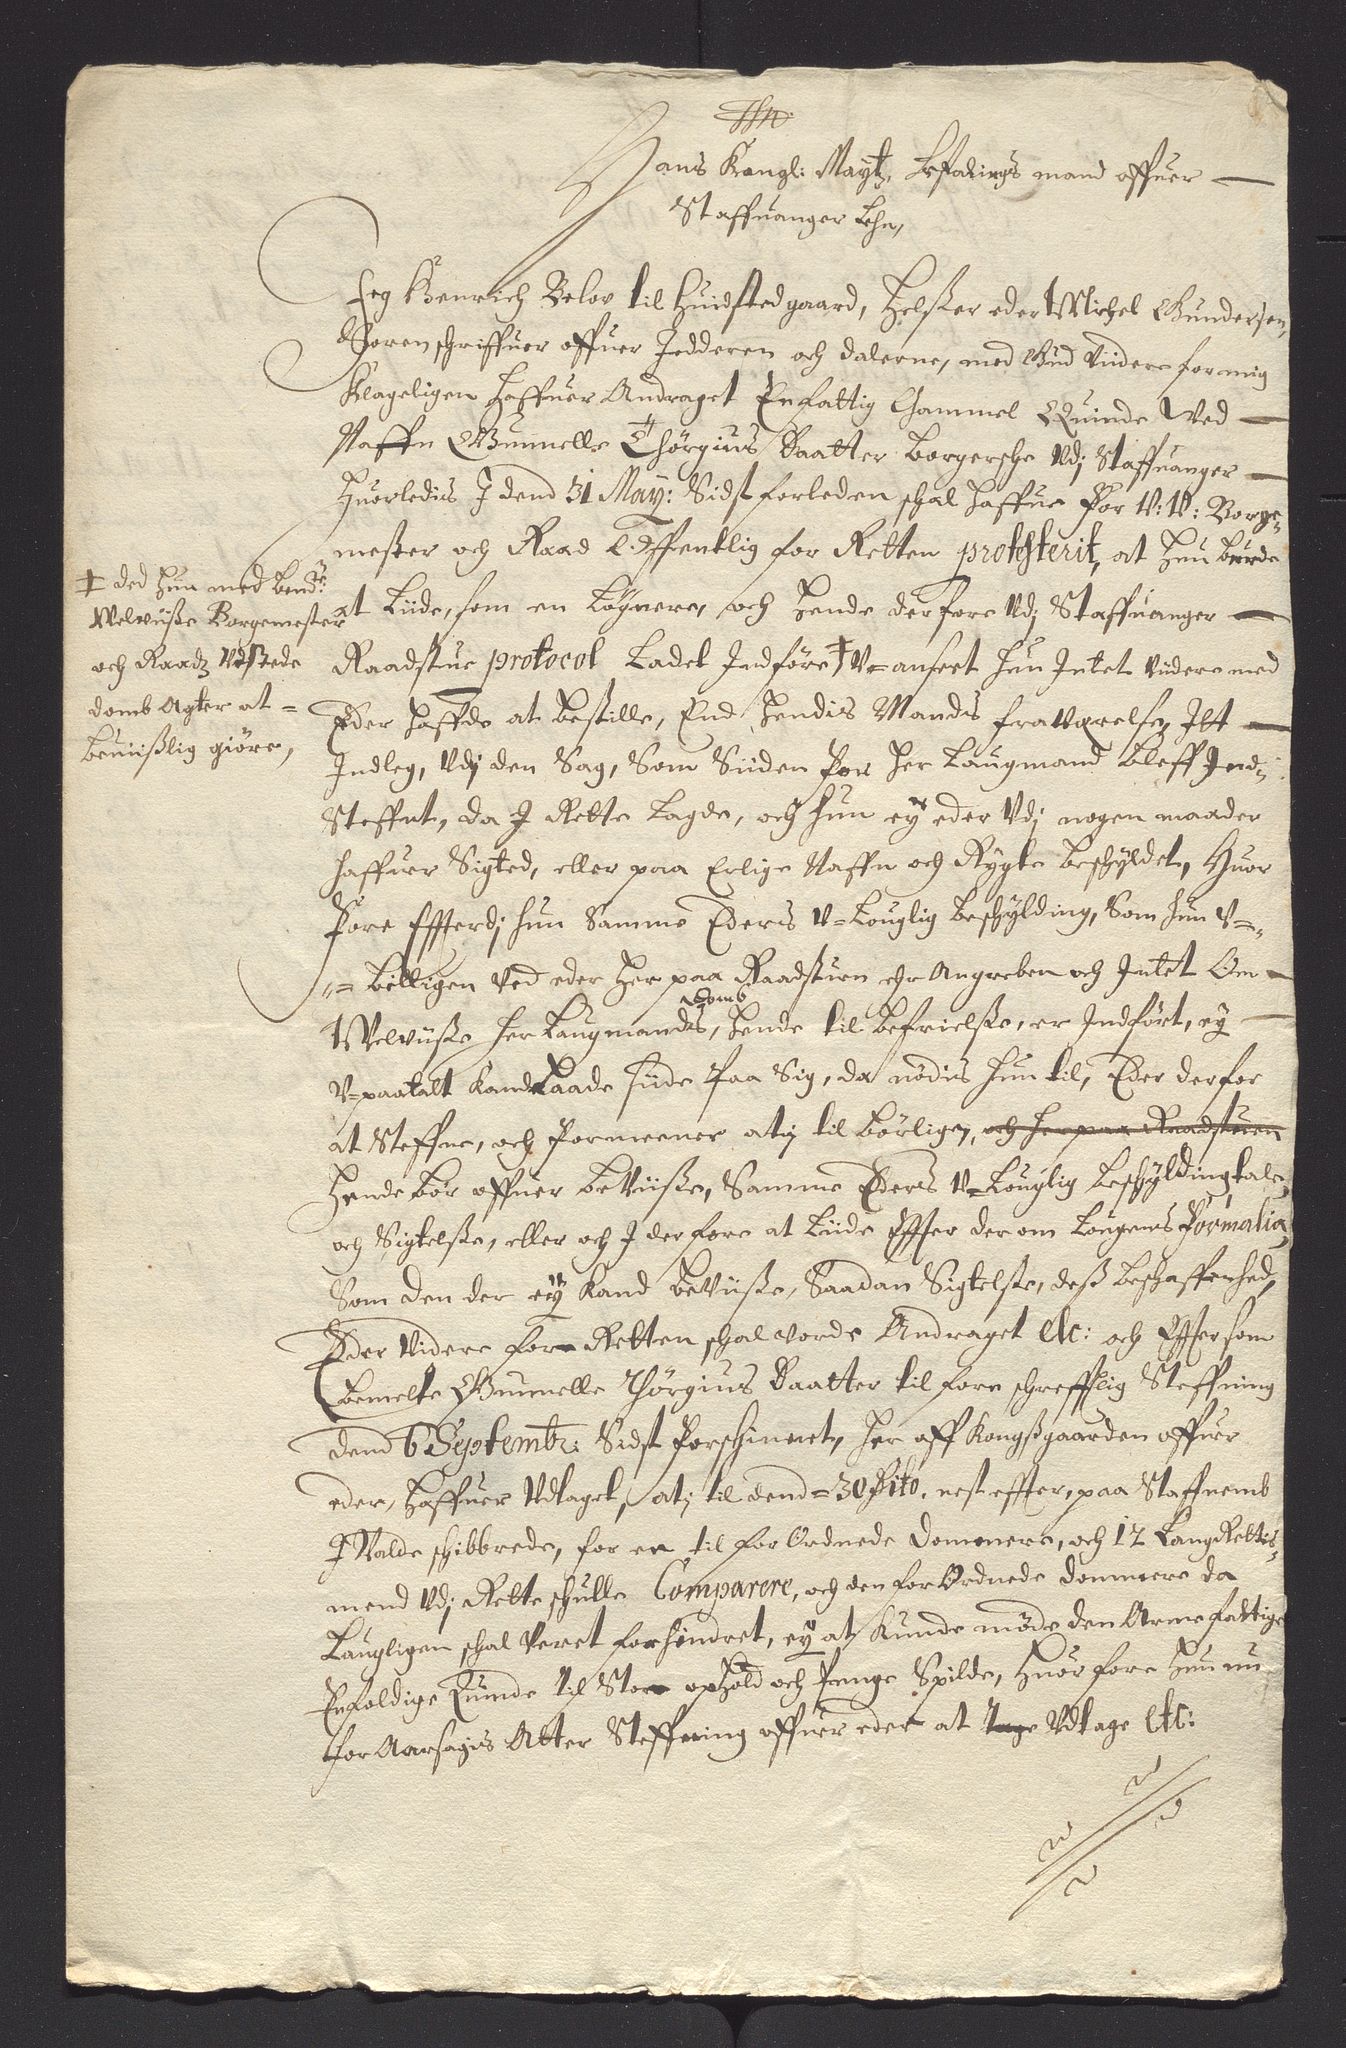 Hans Kongl: Maytz. Befalings mand offuer
Staffuanger Lehn,
Jeg Henrich Below til Huidsted gaard, Helser eder Michel Gundersen,
Soren schriffuer offuer Jedderen och dalerne, med Gud Videre for mig
Klageligen haffuer Andraget En fattig Gammel Quinde Ved
Naffn Gunnelle Thörgius Daatter Borgersche Vdj Staffuanger
Huorledis J dend 31 May: Sidst forleden schal haffue For V: V: Borge-
mester och Raad Offentlig for Retten protesterit, at Hun burde
at Liide, som en Lögnere, och Hende derfore Vdj Staffuanger
Raadstue protocol Ladet Jndföre ‡ V-anseet hun Jntet Videre med
Eder haffde at bestille, End Hendis Mands frawærelse, Jtt
Jndleg, Vdj den Sag, Som Siiden For Her Laugmand bleff Jnd-
Steffnt, da J Rette Lagde, och hun ey eder Vdj nogen maader
haffuer Sigted, eller paa Erlige Naffn och Rygte beschyldet, Huor
Fore Effterdj hun Samme Ederis V-Louglig beschylding, Som hun V-
-billigen Ved eder Her paa Raadstuen ehr Angreben och Jntet Om
Welviiße Her Laugmands domb, Hende til befrielße, er Jndfört, ey
V-paatalt Kand Laade siide Paa Sig, da nödis hun til, Eder derfor
at Steffne, och Formeener atj til börlige, och her paa Raadstuen
Hende bör offuer beViiße, Samme Ederis V-Louglig beschylding, tale
och Sigtelße, eller och J derfore at Liide Effter der om Lougens Formalia,
Som den der ey Kand beViiße, Saadan Sigtelße, deß beschaffenhed,
Eder Videre for Retten schal vorde Andraget etc: och Effter som
bemelte Gunnelle Thörgius Daatter til forn schrefftlig Steffning
dend 6 Septembr: Sidst Forschinnet, her aff Kongßgaarden offuer
eder, haffuer Vdtaget, atj til dend 30 Dito. nest effter, paa Staffnemb
J Nalde schibbrede, for en til for Ordnede Dommere, och 12 LaugRettis-
mend Vdj Rette schulle Comparere, och den for Ordnede dommere da
Laugligen schal Veret forhindret, ey at Kunde möde den Arme fattige
Enfoldige Quinde til Stor ophold och Penge Spilde, Huor fore Hun nu
for Aarsagis Atter Steffning offuer eder at tage Vdtage etc:
‡ ded Hun med bemte
Welviiße Borgemester
och Raadz Vdstede
domb Agter at
beuiißlig giöre,